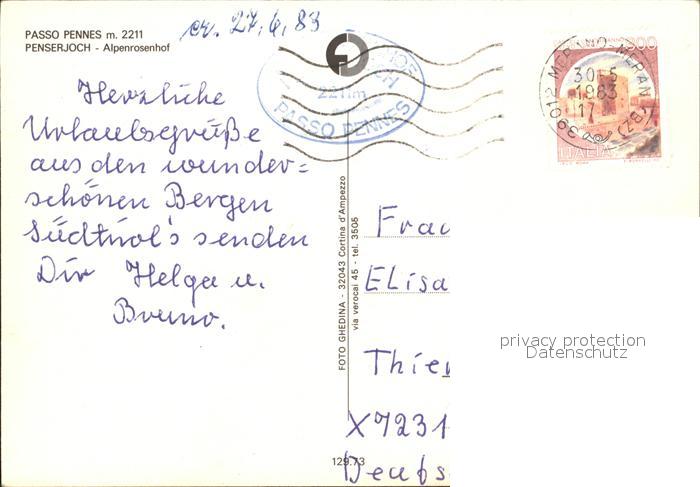 PASSO PENNES m. 2211
PENSERJOCH - Alpenrosenhof
er. 27.6.83
Herzliche
Urlaubsgrüße
aus den wunder=
schönen Bergen
Südtirol's senden
Dir Helga u.
Bruno.
2211m
PASSO PENNES
39012 MERANO-MERAN (BZ)
30-5
1983
17
ITALIA
FOTO GHEDINA - 32043 Cortina d'Ampezzo
via verocai 45 - tel. 3505
Frau
Elisa
Thie
X7231
Deuts
129.73
privacy protection
Datenschutz